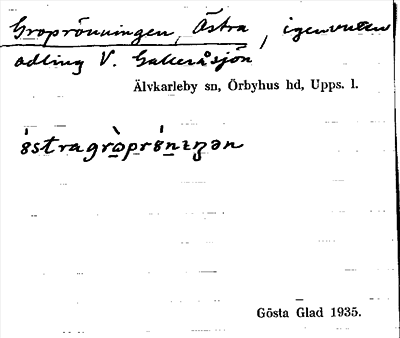 Groprönningen, Östra, igenvuxen
odling V. Gallersjön
Älvkarleby sn, Örbyhus hd, Upps. l.
Gösta Glad 1935.